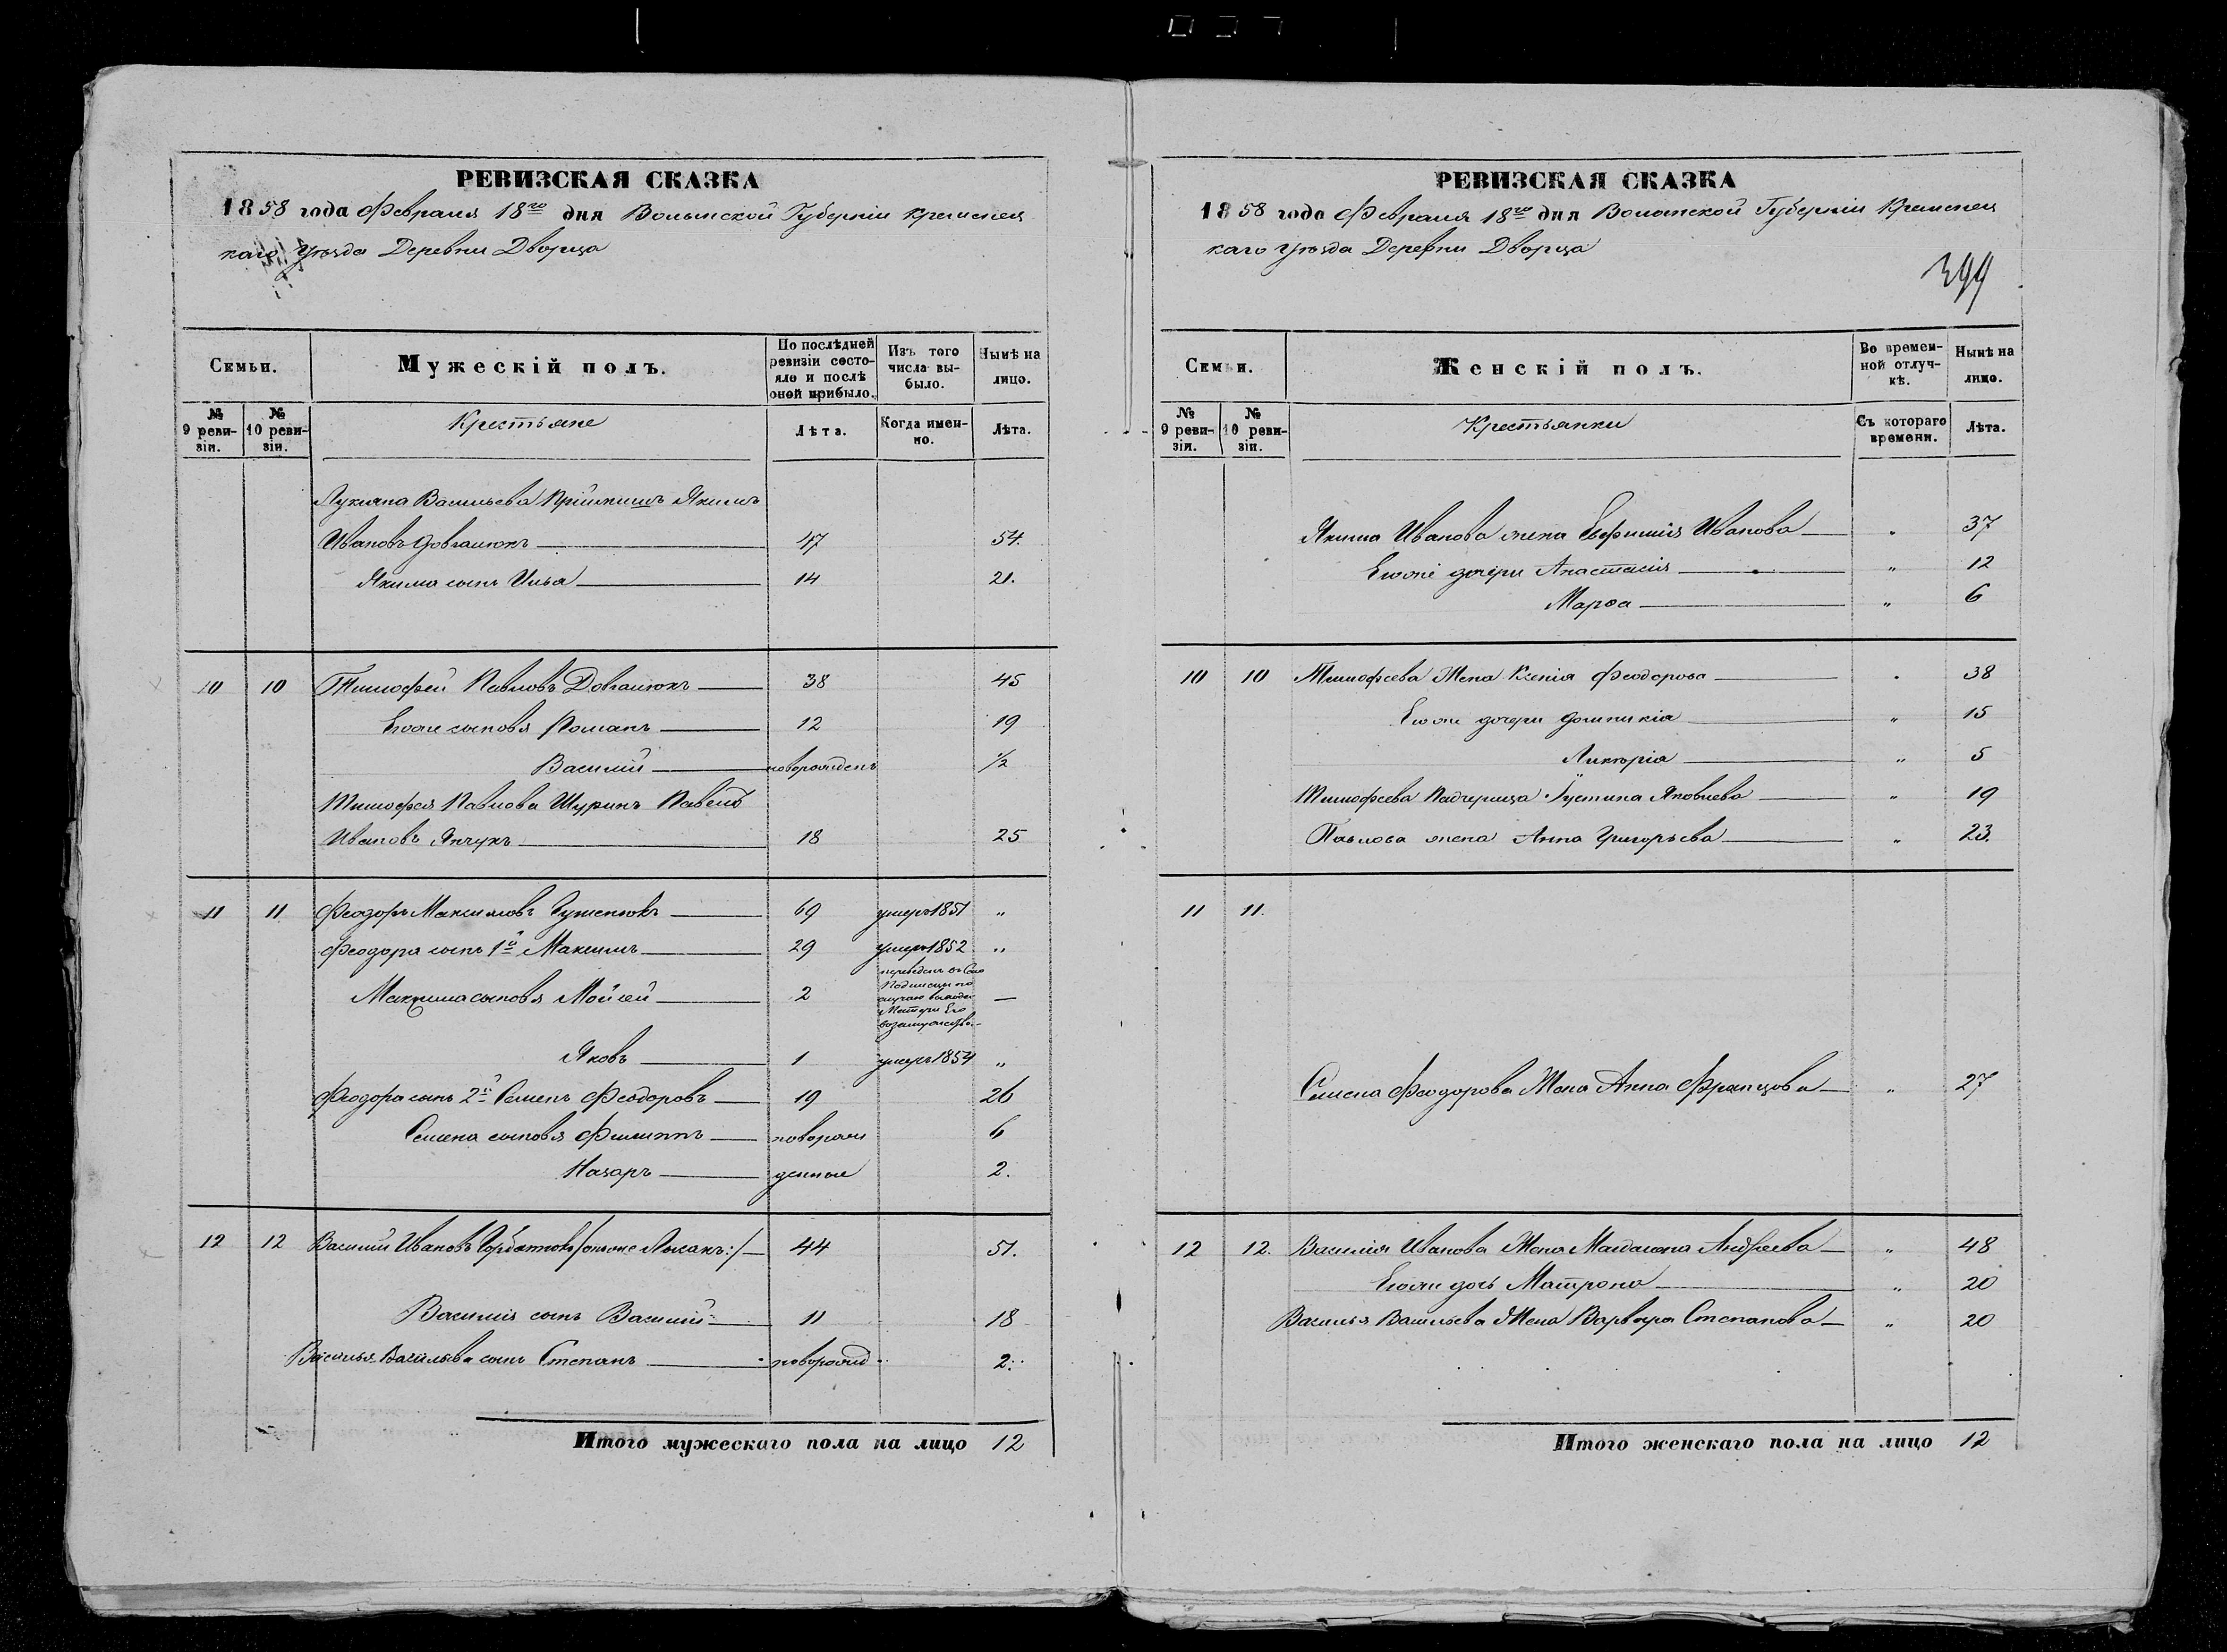 РЕВИЗСКАЯ СКАЗКА
1858 года Февраля 18го дня Волынской Губерніи Кременец
каго Уѣзда Деревни Дворца
Семьи.
Мужескій полъ.
По послѣдней ревизіи состояло и послѣ оной прибыло.
Изъ того числа выбыло.
Нынѣ на лицо.
№ 9 ревизіи.
№ 10 ревизіи.
Крестьяне
Лѣта.
Когда именно.
Лѣта.
Лукіяна Васильева Якимъ
Ивановъ Довгалюкъ 47 54.
Якима сынъ Илья 14 21.
10 10 Тимофей Павловъ Довгалюкъ 38 45
Егоже сыновья Романъ 12 19
Василій новорожденъ 1/2
Тимофея Павлова Шуринъ Павелъ
Ивановъ Янчукъ 18 25
11 11 Феодоръ Максимовъ 69 умеръ 1851 "
Феодора сынъ 1й Максимъ 29 умеръ 1852 "
Максима сыновья Мойсей 2 переведенъ въ Село
по случаю выхода
Матери Его
взамужство —
Яковъ 1 умеръ 1854 "
Феодора сынъ 2й Семенъ Феодоровъ 19 26
Семена сыновья Филиппъ новорож 6
Назаръ денные 2.
12 12 Василій Ивановъ Горбатюкъ /: онже :/ 44 51.
Василія сынъ Василій 11 18
Василья Васильева сынъ Степанъ новорожд 2.
Итого мужескаго пола на лицо 12
РЕВИЗСКАЯ СКАЗКА
1858 года Февраля 18го дня Волынской Губерніи Кременец
каго Уѣзда Деревни Дворца
399
Семьи.
Женскій полъ.
Во временной отлучкѣ.
Нынѣ на лицо.
№ 9 ревизіи.
№ 10 ревизіи.
Крестьянки
Съ котораго времени.
Лѣта.
Якима Иванова жена Евфимія Иванова " 37
Егоже дочери Анастасія " 12
Марѳа " 6
10 10 Тимофеева Жена Ксенія Феодорова " 38
Егоже дочери Домникія " 15
Ликерія " 5
Тимофеева Падчерица Іустина Яковлева " 19
Павлова жена Анна Григорьева " 23.
11 11.
Семена Феодорова Жена Анна Францова " 27
12 12. Василія Иванова Жена Магдалена Андреева " 48
Егоже дочь Матрона " 20
Василья Васильева Жена Варвара Степанова " 20
Итого женскаго пола на лицо 12